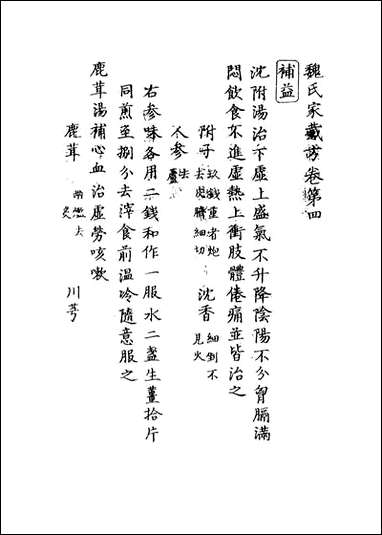 魏氏家藏方卷第四
補益
沈附湯治下虛上盛氣不升降陰陽不分胷膈滿
悶飲食不進虛熱上衝肢體倦痛並皆治之
附子 玖錢重者炮去皮臍細切 沈香 細剉不見火
人參 去蘆
右參味各用二錢和作一服水二盞生薑拾片
同煎至捌分去滓食前溫冷隨意服之
鹿茸湯補心血治虛勞咳嗽
鹿茸 去 炙 川芎